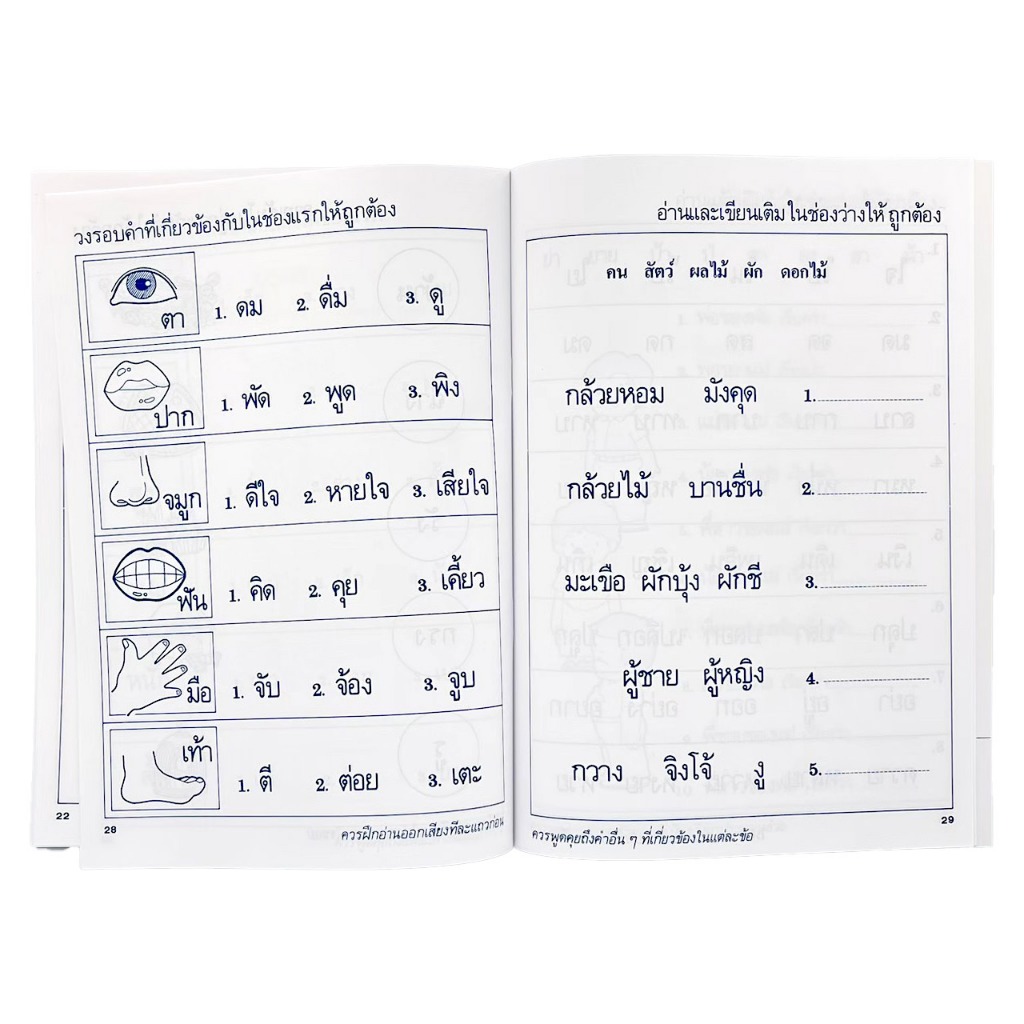 วงรอบคำที่เกี่ยวข้องกับในช่องแรกให้ถูกต้อง
ตา 1. ดม 2. ดื่ม 3. ดู
ปาก 1. พัด 2. พูด 3. พิง
จมูก 1. ดีใจ 2. หายใจ 3. เสียใจ
ฟัน 1. คิด 2. คุย 3. เคี้ยว
มือ 1. จับ 2. จ้อง 3. จูบ
เท้า 1. ตี 2. ต่อย 3. เตะ
22
28
ควรฝึกอ่านออกเสียงทีละแถวก่อน
อ่านและเขียนเติมในช่องว่างให้ถูกต้อง
คน สัตว์ ผลไม้ ผัก ดอกไม้
กล้วยหอม มังคุด 1.
กล้วยไม้ บานชื่น 2.
มะเขือ ผักบุ้ง ผักชี 3.
ผู้ชาย ผู้หญิง 4.
กวาง จิงโจ้ งู 5.
29
ควรพูดคุยถึงคำอื่น ๆ ที่เกี่ยวข้องในแต่ละข้อ